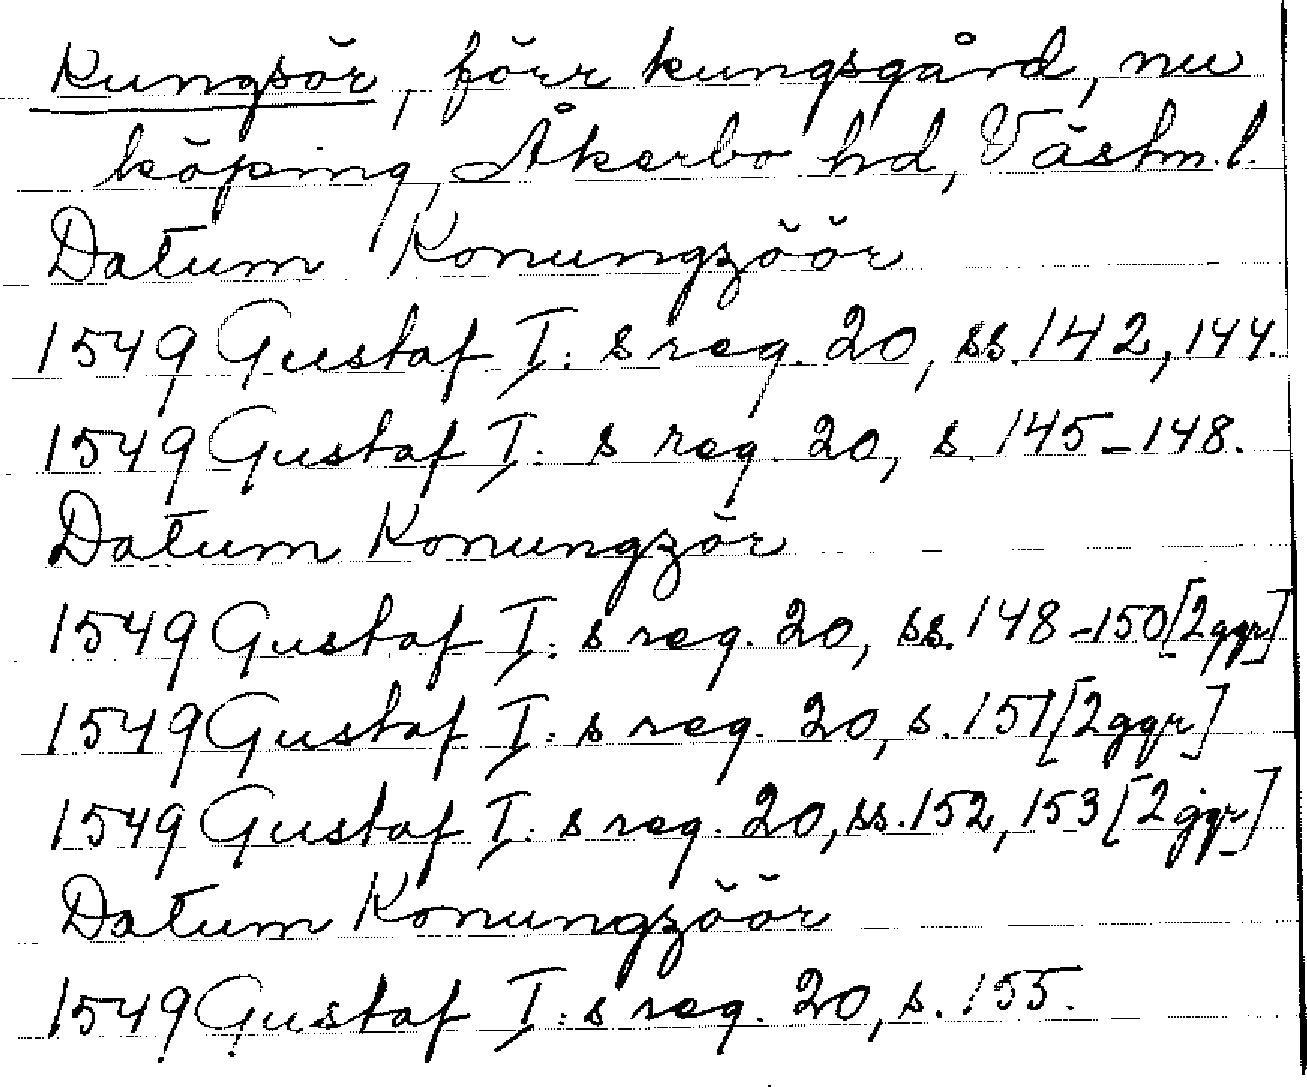 Kungsör, förr kungsgård, nu
köping, Åkerbo hd, Västm. l.
Datum Konungzöör
1549 Gustaf I:s reg. 20, ss. 142, 144.
1549 Gustaf I:s reg. 20, s. 145-148.
Datum Konungzör
1549 Gustaf I:s reg. 20, ss. 148-150 [2ggr]
1549 Gustaf I:s reg. 20, s. 151 [2ggr]
1549 Gustaf I:s reg. 20, ss. 152, 153 [2ggr]
Datum Konungzöör
1549 Gustaf I:s reg. 20, s. 155.